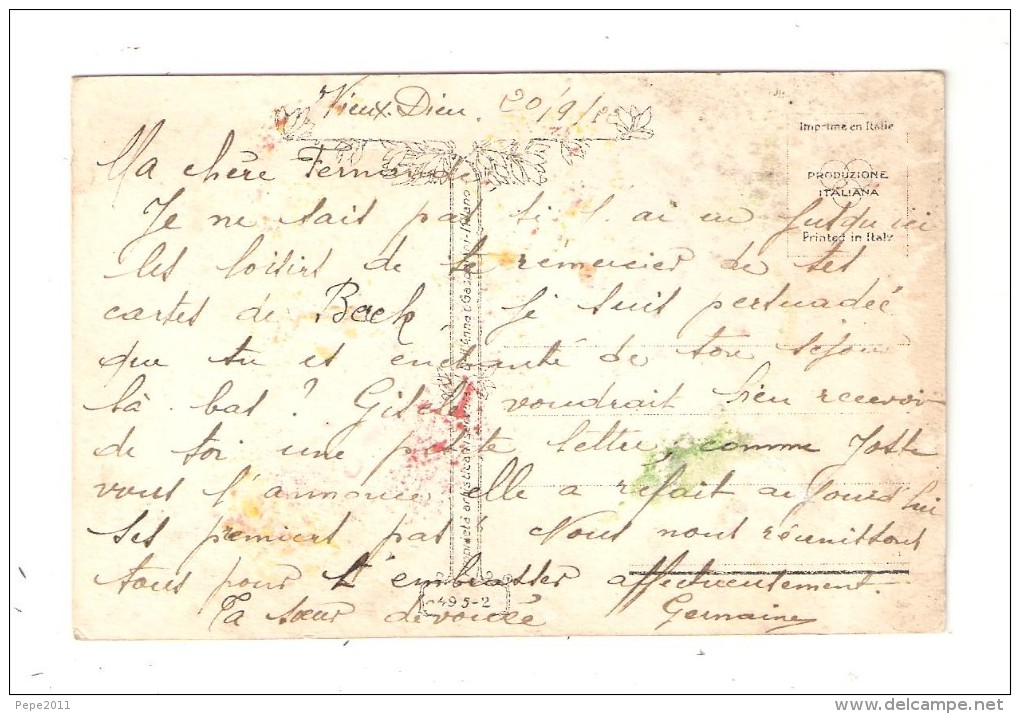 Vieux-Dieu. 20/9/
Ma chère Fernande
Imprimé en Italie
PRODUZIONE
ITALIANA
Printed in Italy
Je ne sais pas si j'ai eu jusqu'ici
les loisirs de te remercier de tes
cartes de Back, je suis persuadée
que tu es enchanté de ton séjour
là-bas? Giselle voudrait bien recevoir
de toi une petite lettre, comme Joste
vous l'annonce elle a refait aujourd'hui
ses premiers pas. Nous nous réunissons
tous pour t'embrasser affectueusement.
495-2
Ta sœur dévouée Germaine
Pepe2011
delcampe.net